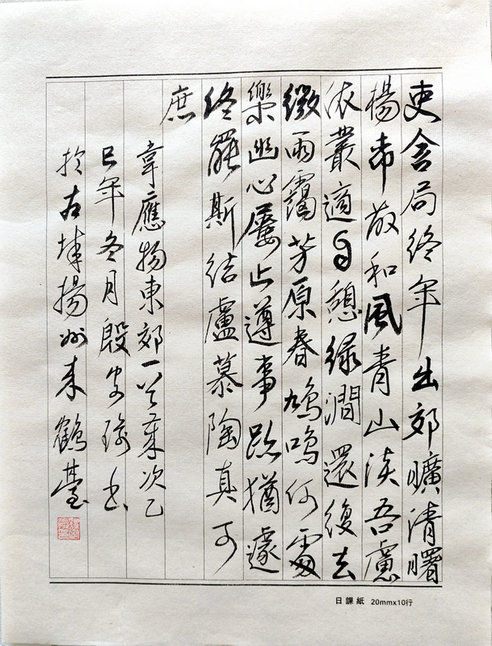 吏舍局終年出郊曠清曙
楊柳散和風青山淡吾慮
依叢適自憩緣澗還復去
微雨靄芳原春鳩鳴何處
樂幽心屢止遵事跡猶遽
終罷斯結廬慕陶真可
庶
韋應物東郊一首歲次乙
巳年冬月殷書
於古埭揚州來鶴臺
日課紙 20mmx10行